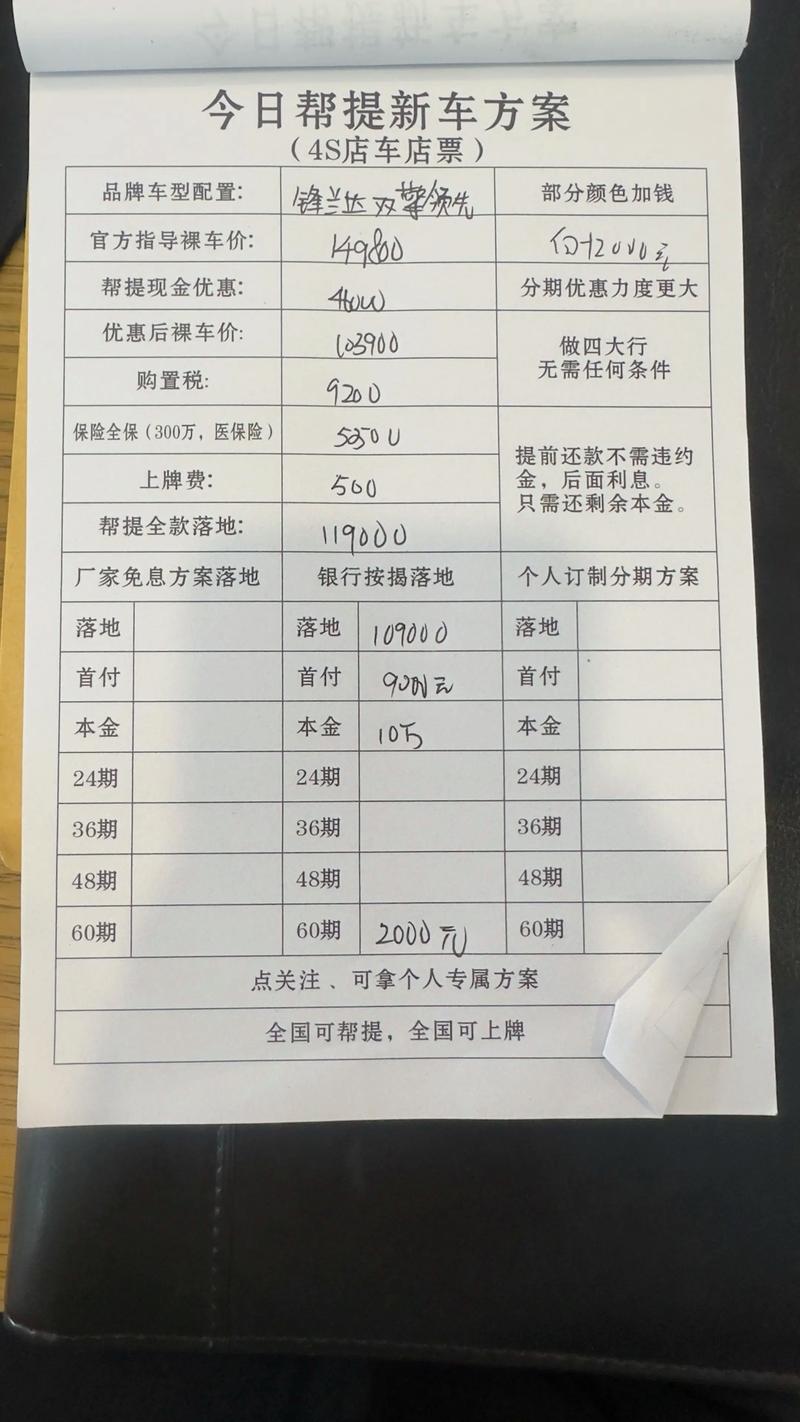 今日帮提新车方案
（4S店车店票）
品牌车型配置: 锋兰达双擎领先 部分颜色加钱
官方指导裸车价: 149800 白+2000元
帮提现金优惠: 分期优惠力度更大
优惠后裸车价: 103900 做四大行
无需任何条件
购置税: 9200
保险全保（300万，医保险） 提前还款不需违约
金，后面利息。
只需还剩余本金。
上牌费: 500
帮提全款落地: 119000
厂家免息方案落地 银行按揭落地 个人订制分期方案
落地 落地 109000 落地
首付 首付 9000元 首付
本金 本金 10万 本金
24期 24期 24期
36期 36期 36期
48期 48期 48期
60期 60期 2000元 60期
点关注、可拿个人专属方案
全国可帮提，全国可上牌